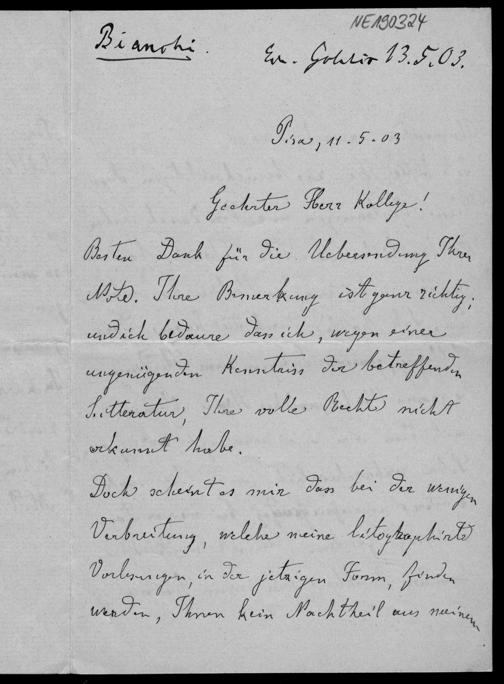 NE190324
Bianchi.
13.5.03.
Pisa, 11-5-03
Geehrter Herr Kollege!
Besten Dank für die Uebersendung Ihrer
Note. Ihre Bemerkung ist ganz richtig;
und ich bedaure dass ich, wegen einer
ungenügenden Kenntniss der betreffenden
Litteratur, Ihre volle Rechte nicht
erkannt habe.
Doch scheint es mir dass bei der wenigen
Verbreitung, welche meine litographirte
Vorlesungen, in der jetzigen Form, finden
werden, Ihnen kein Nachtheil aus meinem